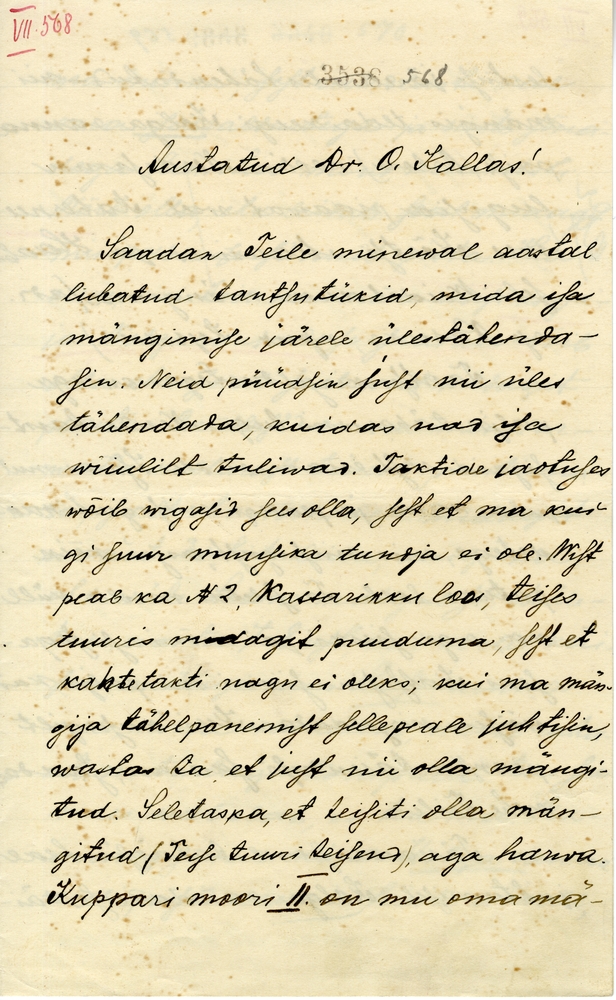 VII. 568
3538 568
Austatud Dr. O. Kallas!
Saadan Teile minewal aastal
lubatud tantsutükid, mida isa
mängimise järele ülestähenda-
sin. Neid püüdsin just nii üles
tähendada, kuidas nad isa
wiiulilt tuliwad. Taktide jaotuses
wõib wigasid sees olla, sest et ma kui-
gi suur muusika tundja ei ole. Wist
peab ka № 2, Kassarikku loos, teises
tuuris midagit puuduma, sest et
kahte takti nagu ei oleks; kui ma män-
gija tähelpanemist selle peale juhtisin,
wastas ta, et just nii olla mängi-
tud. Seletas ka, et teisiti olla män-
gitud (Teise tuuri teisend), aga harwa.
Kuppari moori II. on mu oma mä-